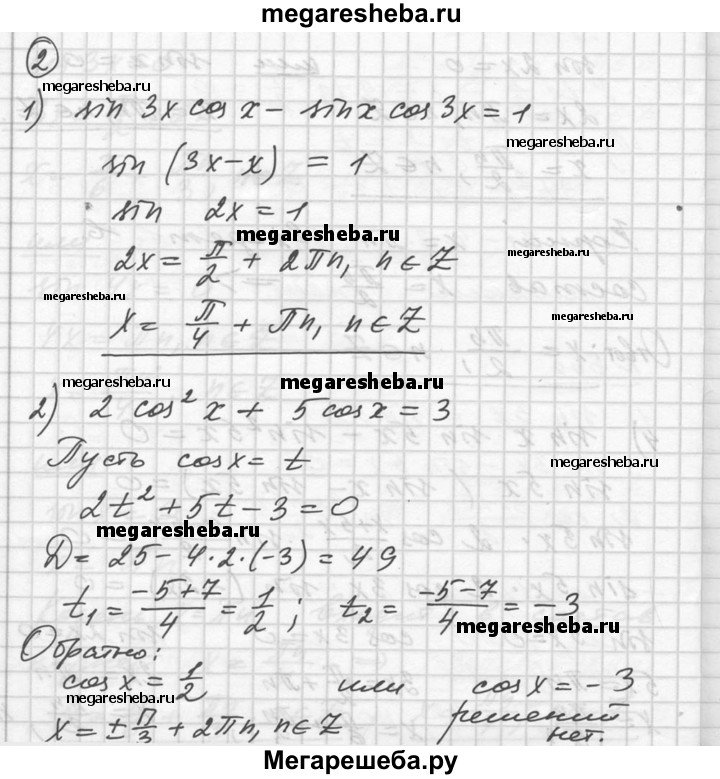 megaresheba.ru
2
megaresheba.ru
1) sin 3x cos x - sin x cos 3x = 1
megaresheba.ru
sin (3x-x) = 1
sin 2x = 1
megaresheba.ru
2x = π/2 + 2πn, n∈Z
megaresheba.ru
megaresheba.ru
x = π/4 + πn, n∈Z
megaresheba.ru
megaresheba.ru
2) 2 cos² x + 5 cos x = 3
Пусть cos x = t
megaresheba.ru
2t² + 5t - 3 = 0
megaresheba.ru
D = 25 - 4·2·(-3) = 49
t₁ = (-5+7)/4 = 1/2 ; t₂ = (-5-7)/4 = -3
megaresheba.ru
Обратно:
cos x = 1/2 или cos x = -3
megaresheba.ru
x = ± π/3 + 2πn, n∈Z решений
нет.
Мегарешеба.ру